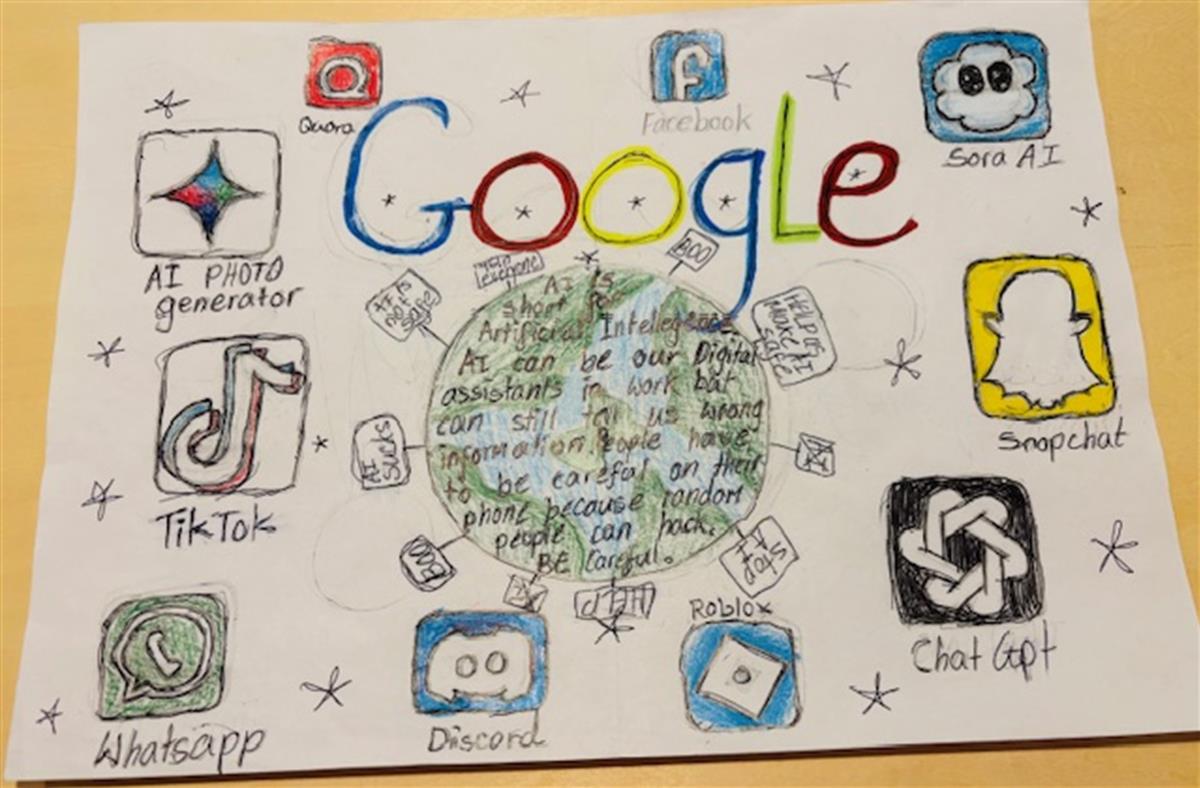 Quora
Facebook
Sora AI
Google
AI PHOTO
generator
BOO
everyone
AI IS
not
safe
HELP US
MAKE AI
safe
AI is
short for
Artificial Intellegence.
AI can be our Digital
assistants in work but
can still tell us wrong
information. People have
to be careful on their
phone because random
people can hack.
BE Careful.
Snapchat
TikTok
AI
SUCKS
BOO
Stop
AI
Roblox
Chat Gpt
Whatsapp
Discord